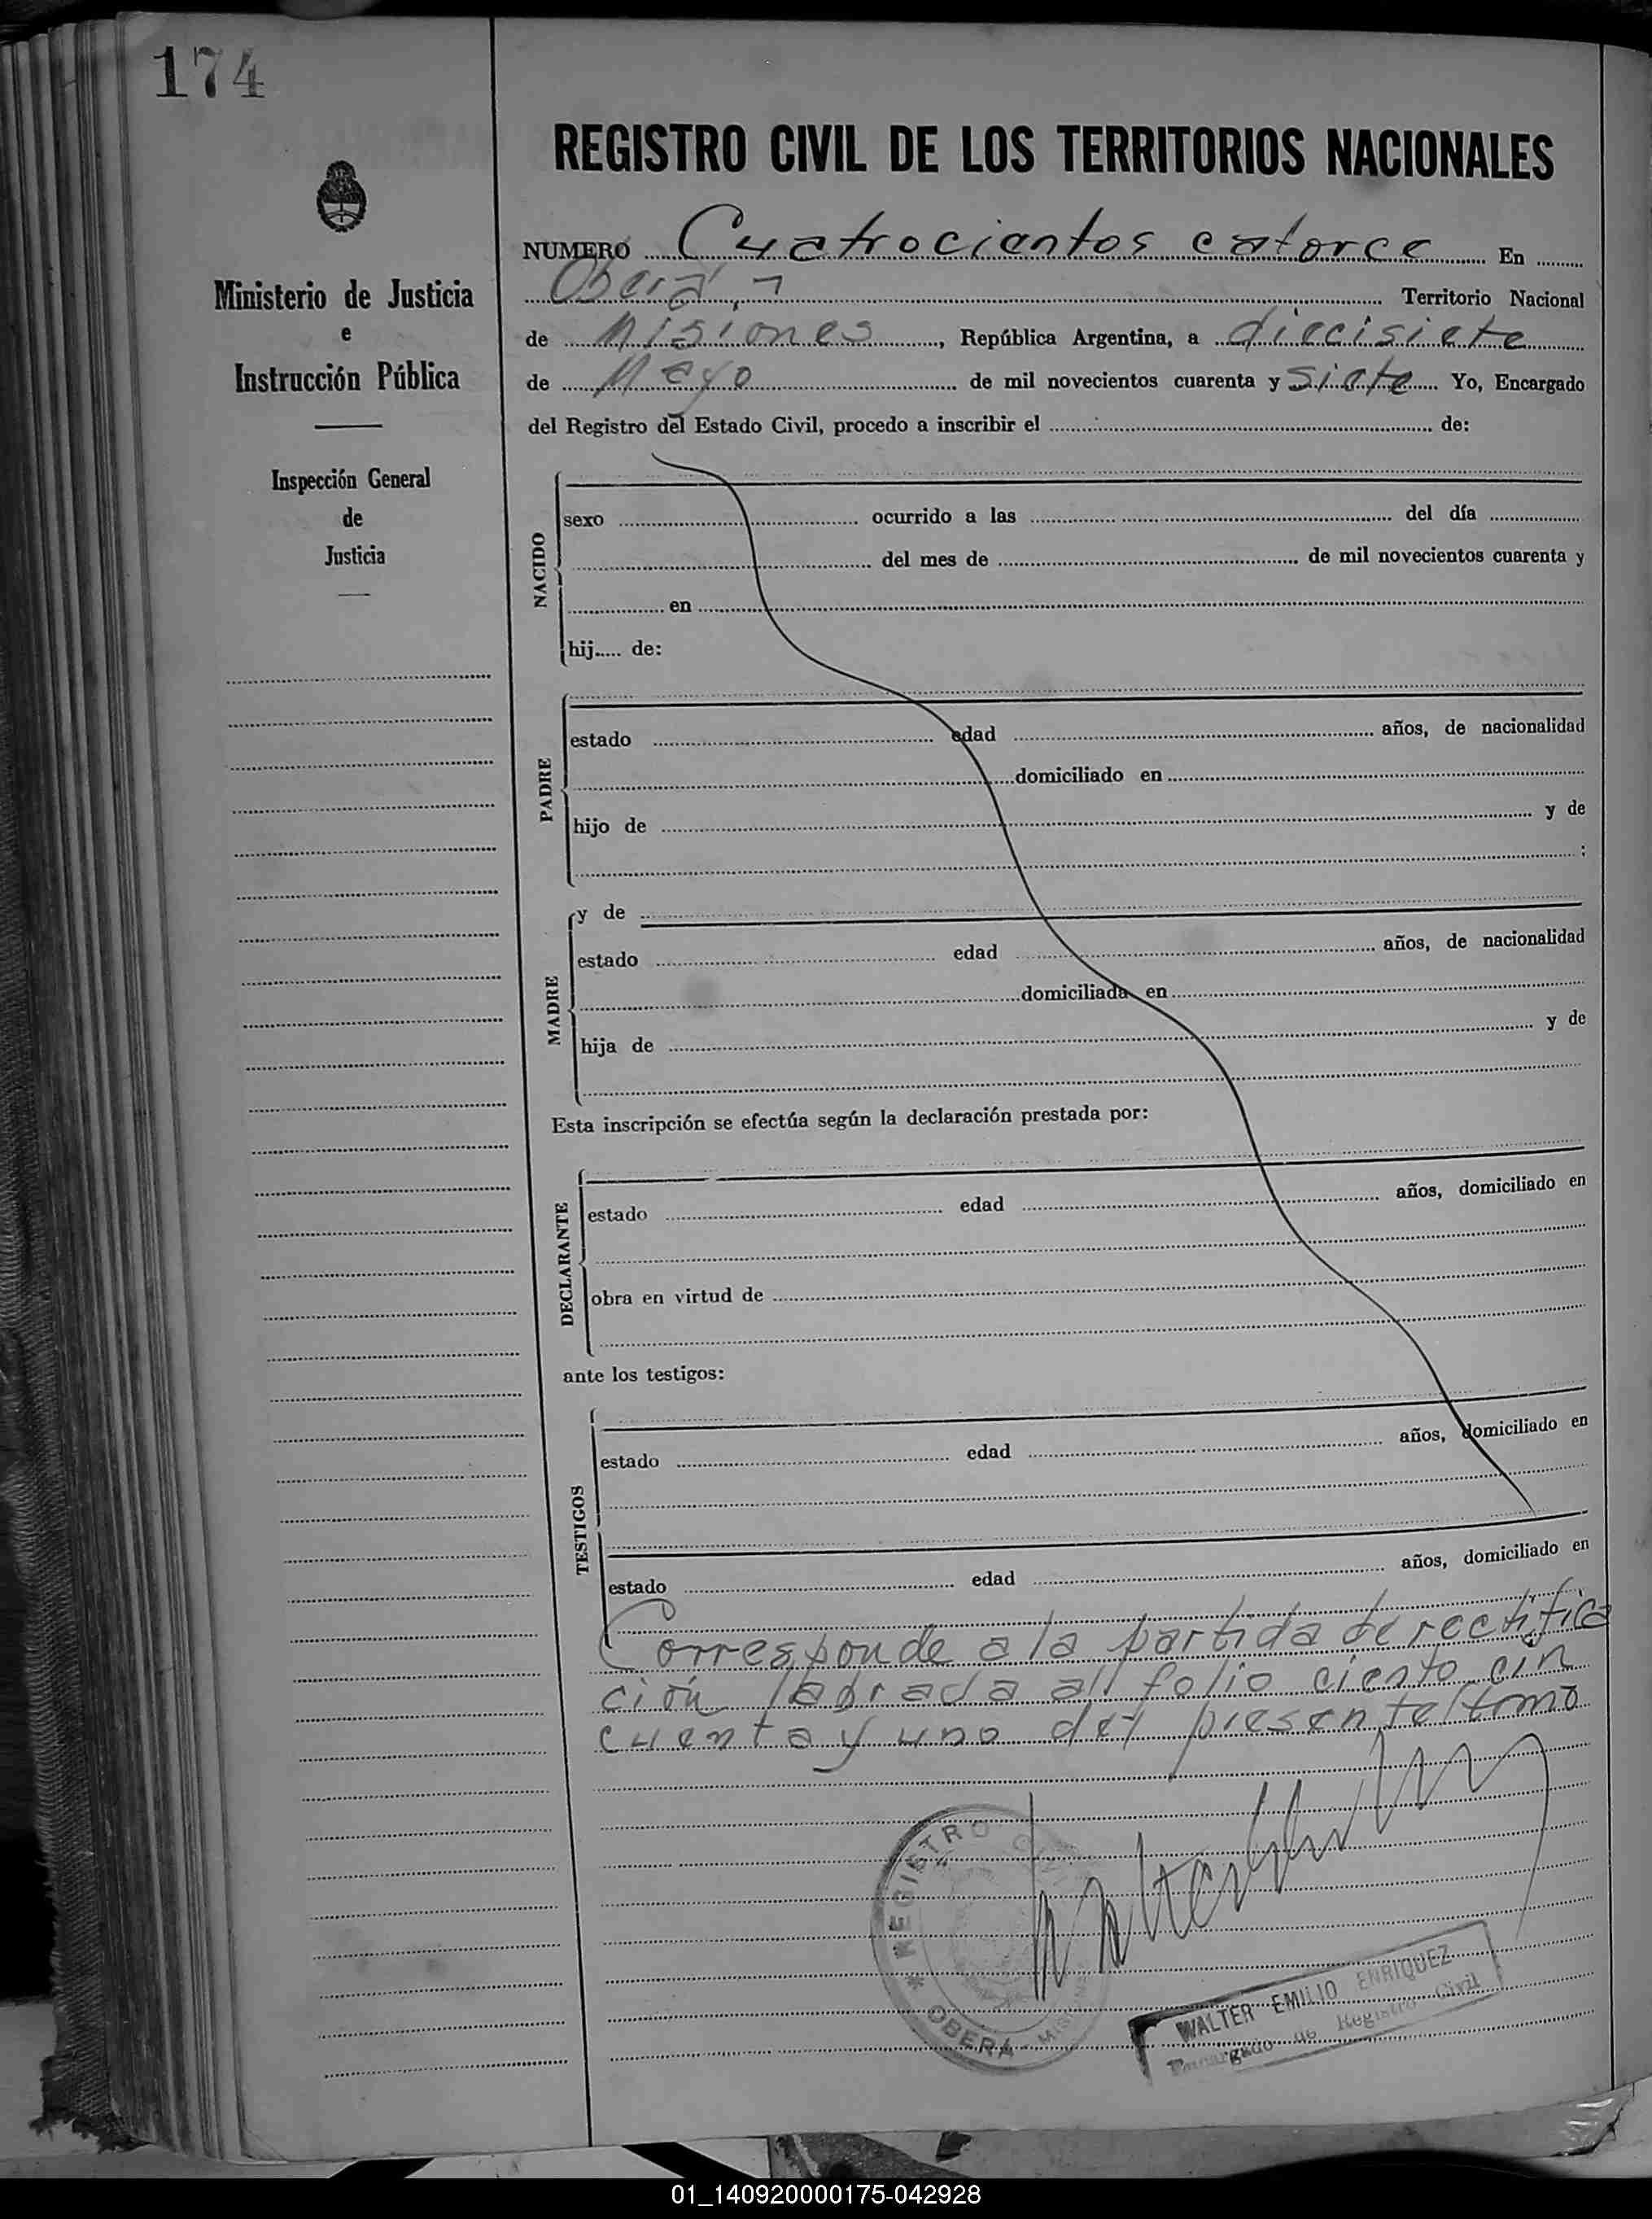 174
REGISTRO CIVIL DE LOS TERRITORIOS NACIONALES
Ministerio de Justicia
e
Instrucción Pública
Inspección General
de
Justicia
NUMERO Cuatrocientos catorce En
Oberá, Territorio Nacional
de Misiones, República Argentina, a diecisiete
de Mayo de mil novecientos cuarenta y siete Yo, Encargado
del Registro del Estado Civil, procedo a inscribir el de:
NACIDO
sexo ocurrido a las del día
del mes de de mil novecientos cuarenta y
en
hij..... de:
PADRE
estado edad años, de nacionalidad
domiciliado en
hijo de y de
;
MADRE
y de
estado edad años, de nacionalidad
domiciliada en
hija de y de
Esta inscripción se efectúa según la declaración prestada por:
DECLARANTE
estado edad años, domiciliado en
obra en virtud de
ante los testigos:
TESTIGOS
estado edad años, domiciliado en
estado edad años, domiciliado en
Corresponde a la partida de rectifica
ción labrada al folio ciento cin
cuenta y uno del presente tomo
* REGISTRO CIVIL
OBERÁ - MISIONES
WALTER EMILIO ENRIQUEZ
Encargado de Registro Civil
01_140920000175-042928